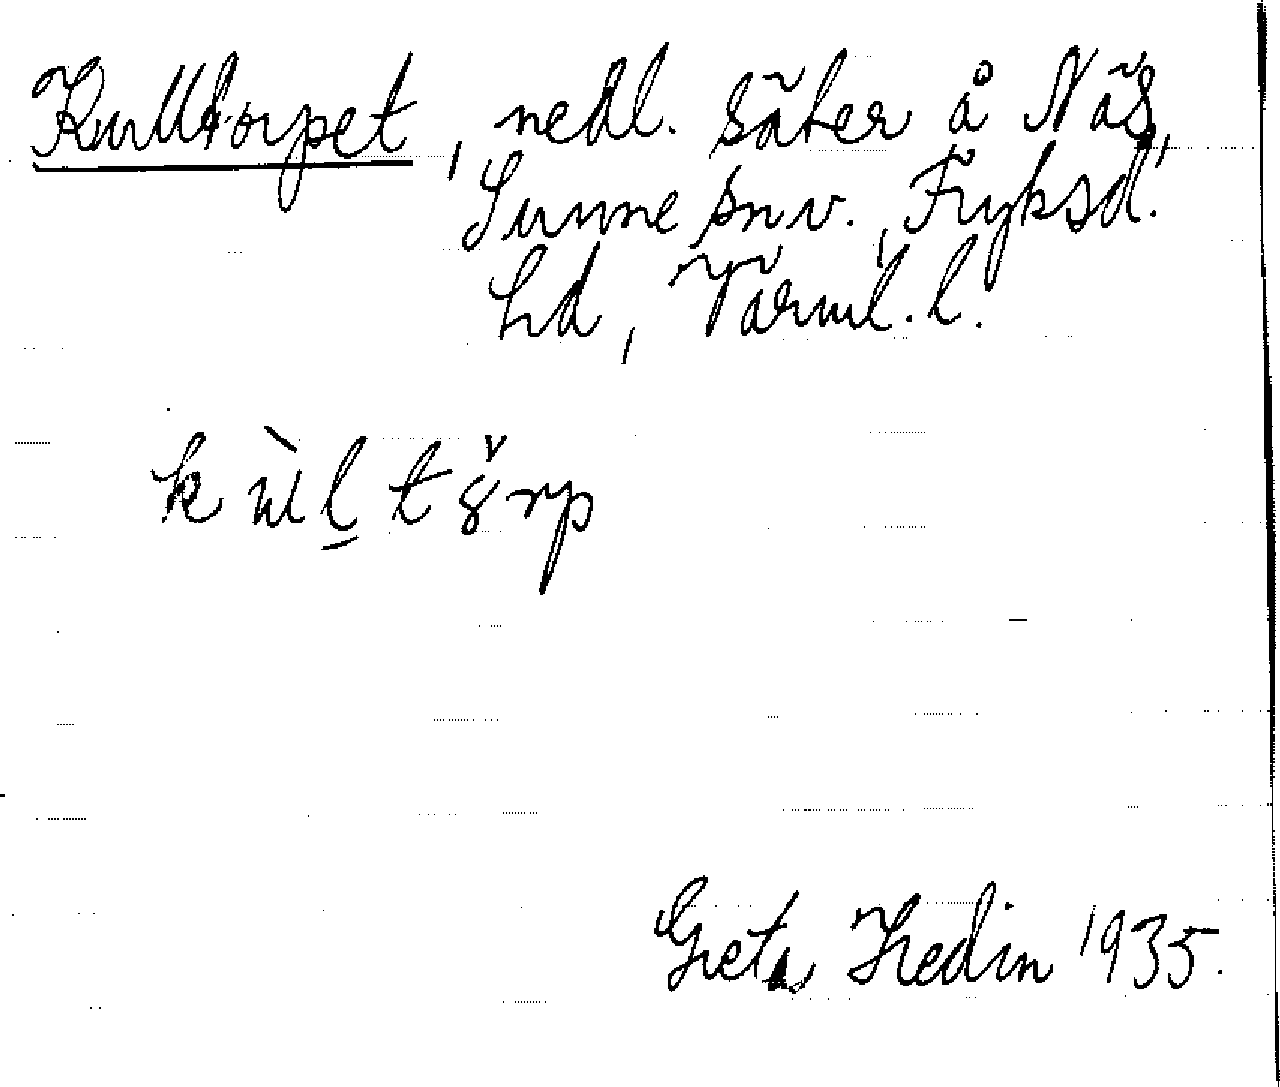 Kulltorpet, nedl. säter å Näs,
Sunne snv., Fryksd.
hd, Värml. l.
Greta Hedin 1935.